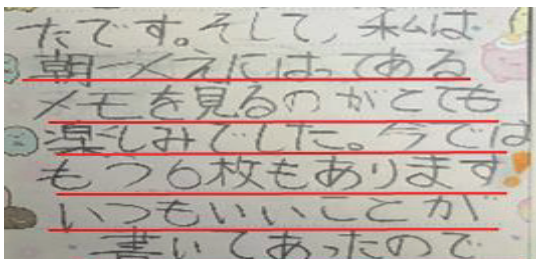 たです。そして、私は
朝つくえにはってある
メモを見るのがとても
楽しみでした。今では
もう6枚もあります
いつもいいことが
書いてあったので